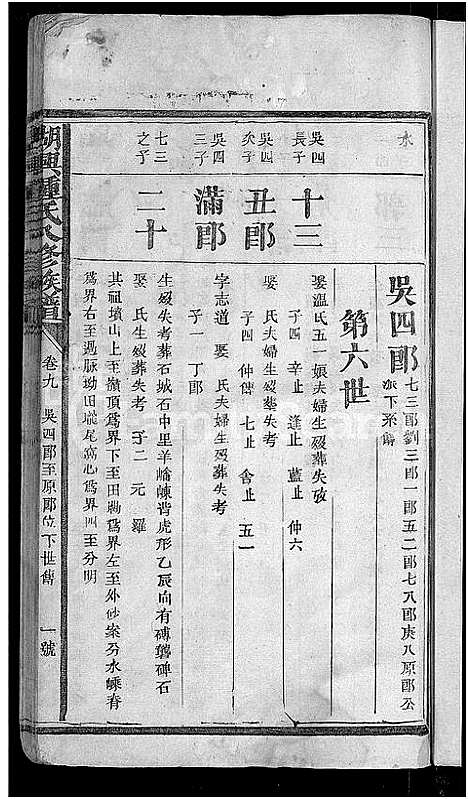 水
吳四郎
七三郎劉三郎一郎五二郎七八郎庚八原郎公
派下系傳
第六世
吳四
長子
十三
娶溫氏五一娘夫婦生歿葬失攷
子四 辛止 逢止 藍止 仲六
吳四
次子
丑郎
娶 氏夫婦生歿葬失考
子四 仲傳 七止 舍止 五一
吳四
三子
滿郎
字志道 娶 氏夫婦生歿葬失考
子一 丁郎
七三
之子
二十
生歿失考葬石城石中里羊嶠崠背虎形乙辰向有磚甃碑石
娶 氏生歿葬失考 子二 元 羅
其祖墳山上至嶺頂為界下至田勘為界左至外砂案另水嵊脊
為界右至過脉坳田壠尾窩心為界四至分明
鍾氏 修族譜
卷九
吳四郎至原郎位下世傳
一號